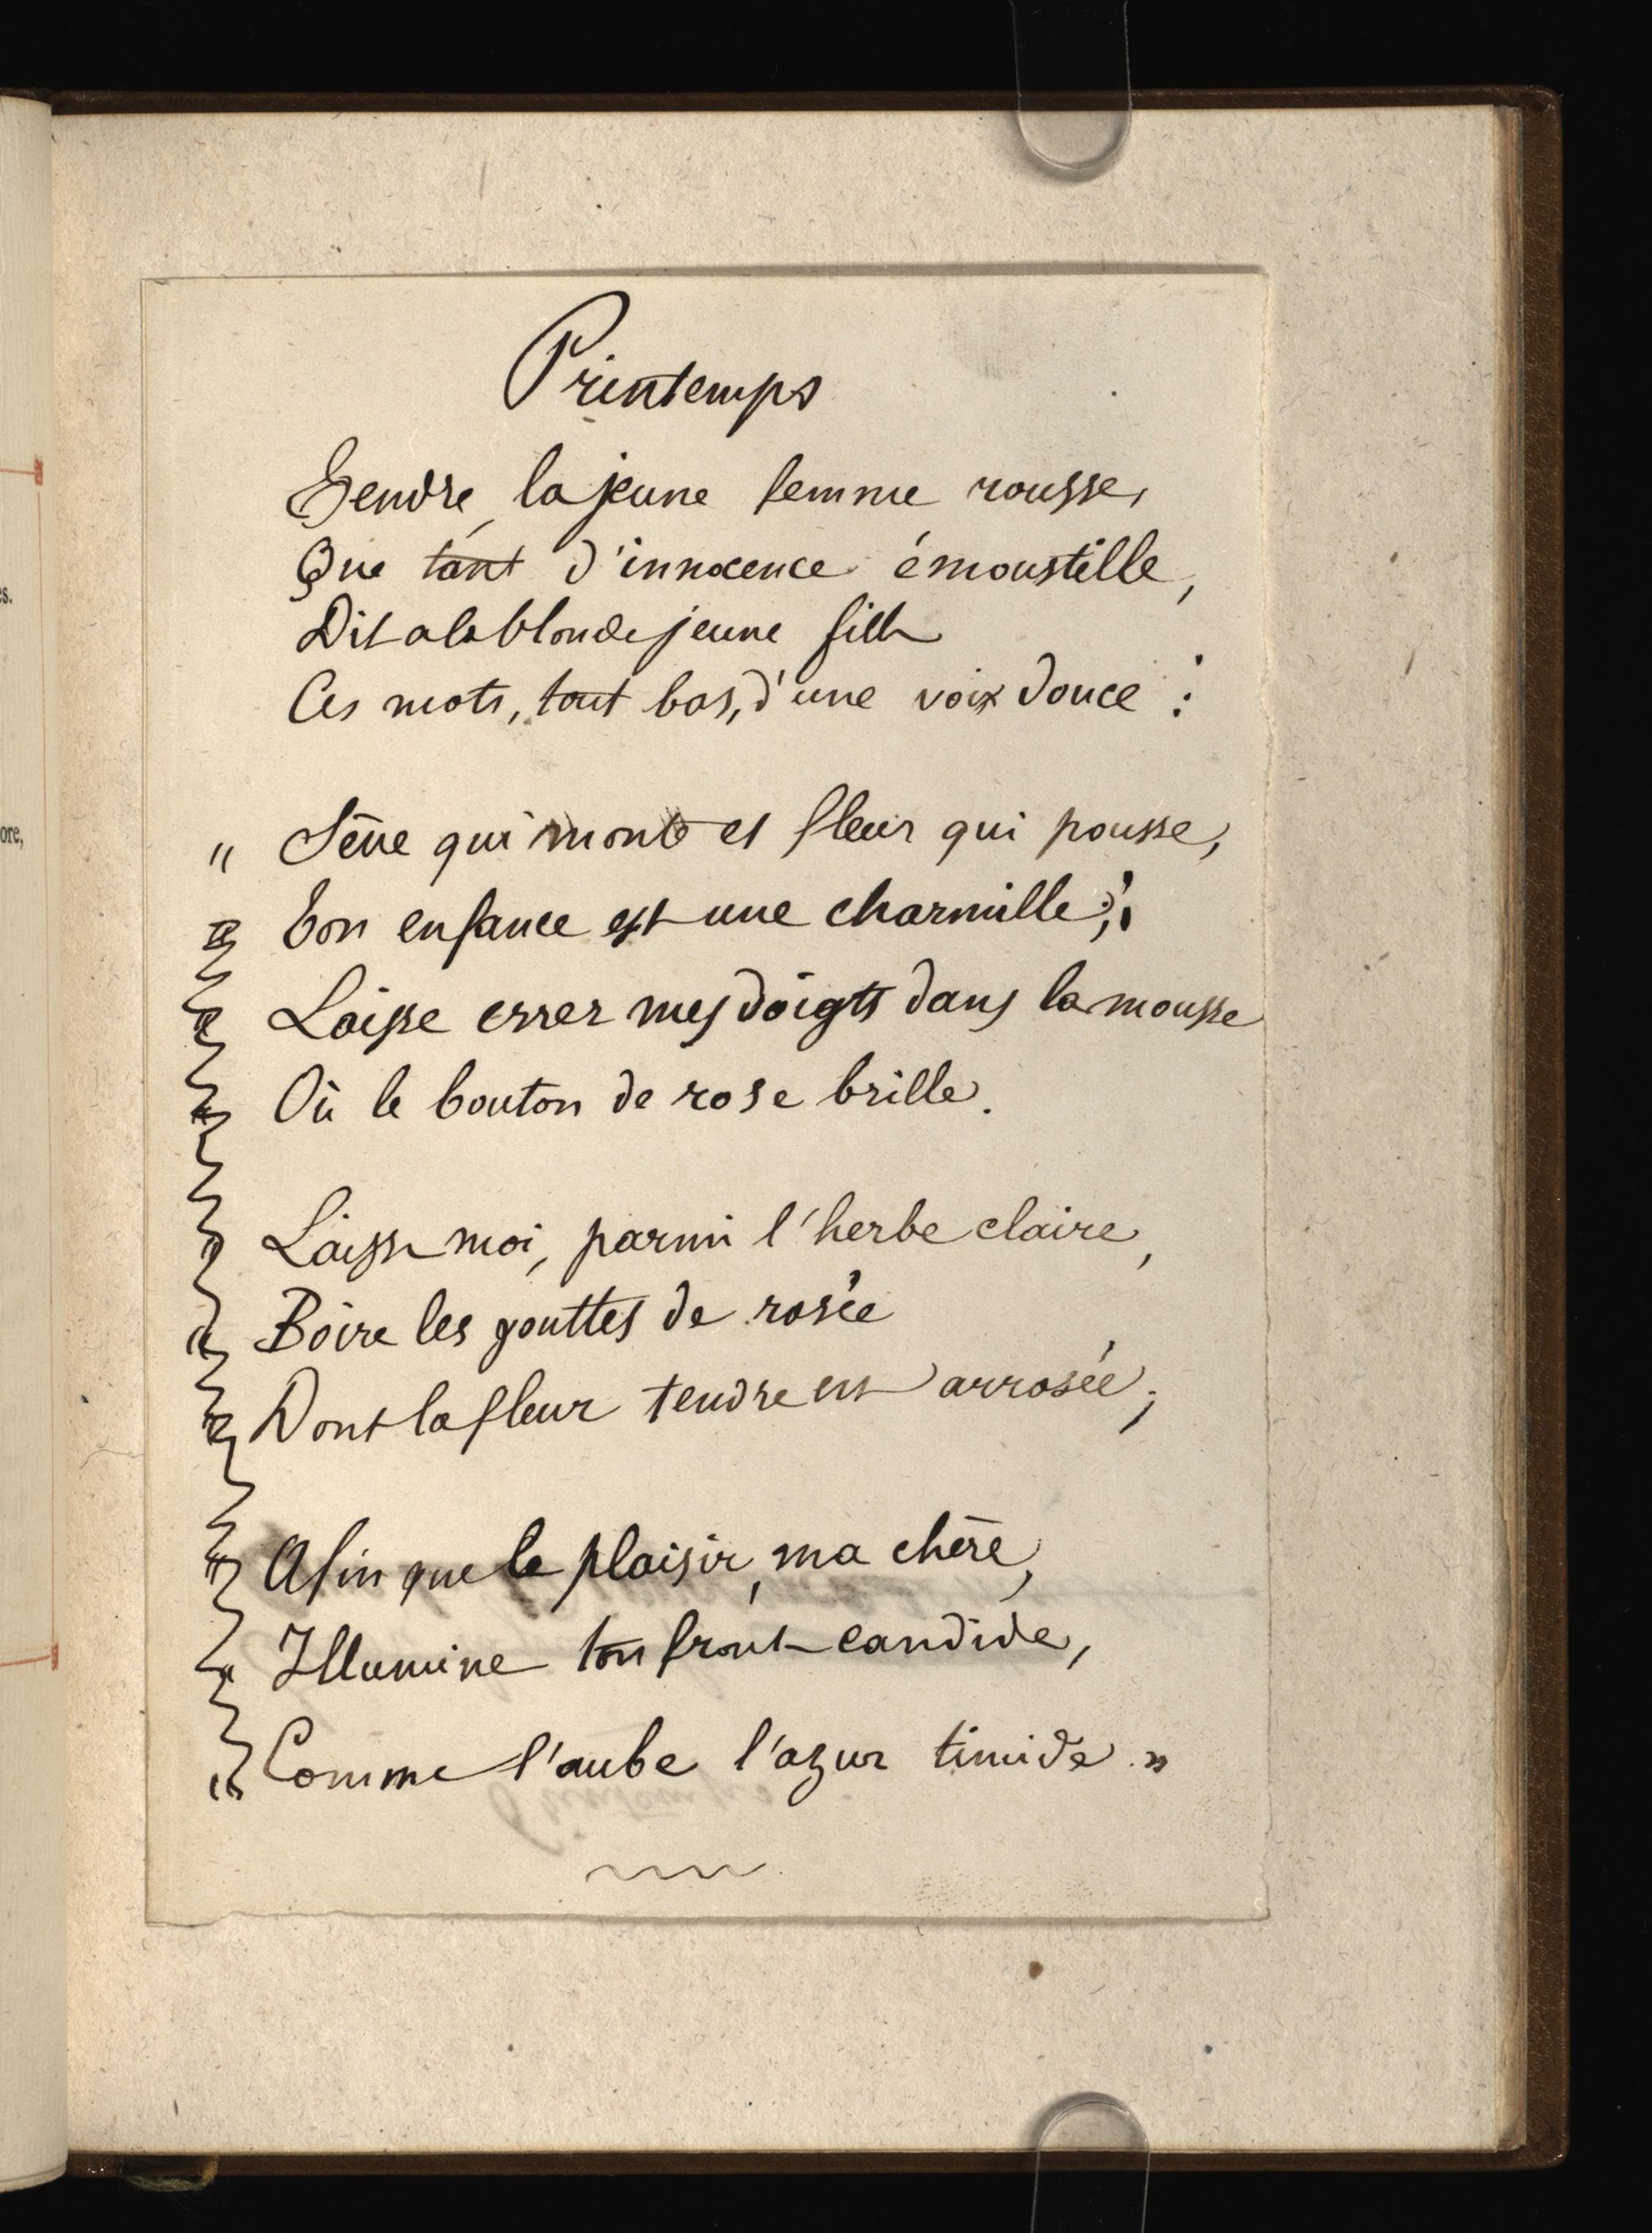 es.
ore,
Printemps
Tendre, la jeune femme rousse,
Que tant d'innocence émoustille,
Dit à la blonde jeune fille
Ces mots, tout bas, d'une voix douce :
" Sève qui monte et fleur qui pousse,
Ton enfance est une charmille ;
Laisse errer mes doigts dans la mousse
Où le bouton de rose brille.
Laisse moi, parmi l'herbe claire,
Boire les gouttes de rosée
Dont la fleur tendre est arrosée ;
Afin que le plaisir, ma chère,
Illumine ton front candide,
Comme l'aube l'azur timide. "